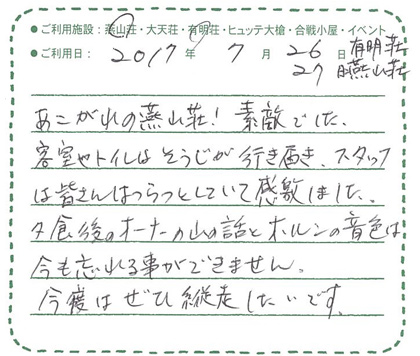 ●ご利用施設：燕山荘・大天荘・有明荘・ヒュッテ大槍・合戦小屋・イベント
●ご利用日： 2017 年 7 月 26 日 有明荘
27日燕山荘
あこがれの燕山荘！素敵でした。
客室やトイレはそうじが行き届き、スタッフ
は皆さんはつらつとしていて感激しました。
夕食後のオーナーの山の話とホルンの音色は
今も忘れる事ができません。
今度はぜひ縦走したいです。